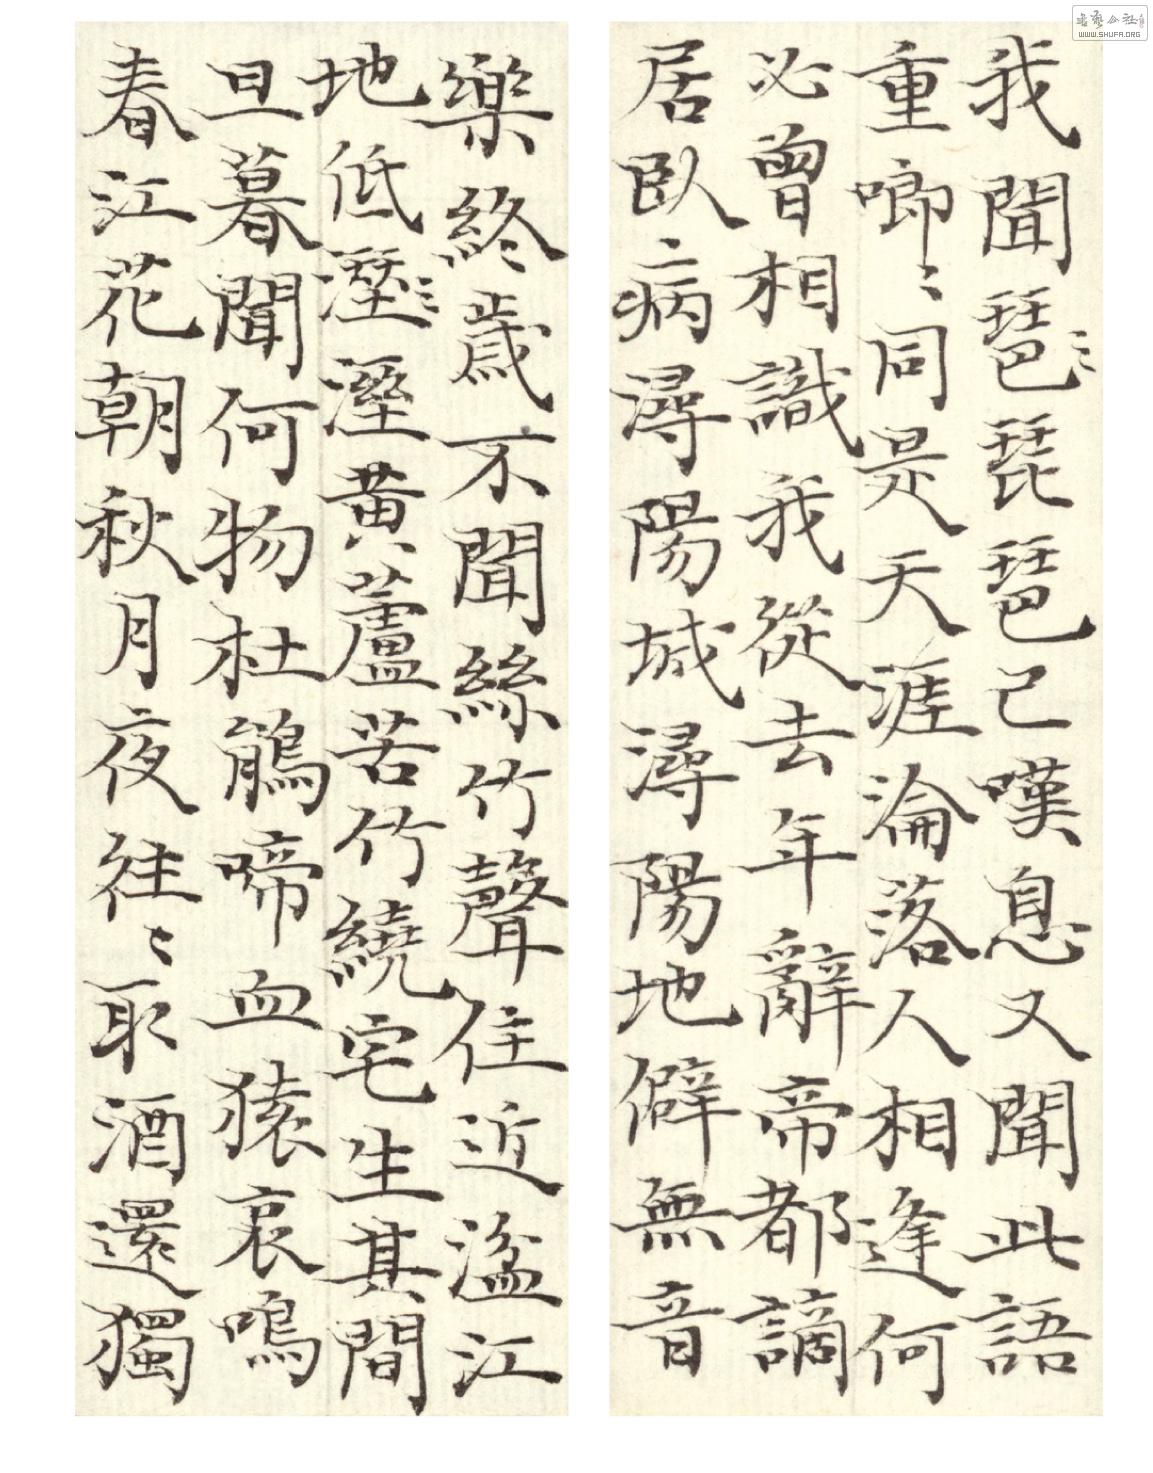 我聞琶琵琶已嘆息又聞此語
重唧〻同是天涯淪落人相逢何
必曾相識我從去年辭帝都謫
居臥病潯陽城潯陽地僻無音
樂終歲不聞絲竹聲住近湓江
地低溼溼黃蘆苦竹繞宅生其間
旦暮聞何物杜鵑啼血猿哀鳴
春江花朝秋月夜往〻取酒還獨
書藝公社
WWW.SHUFA.ORG